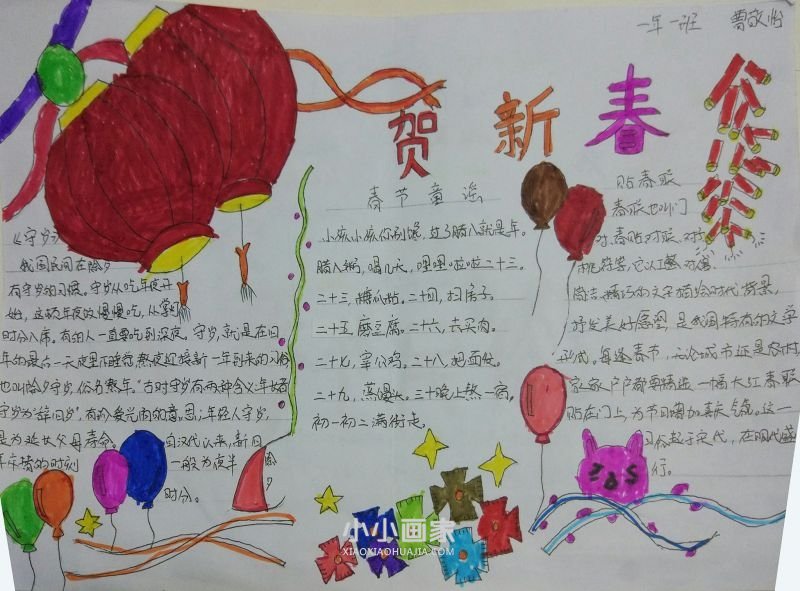 一年一班 曹敬怡
贺新春
《守岁》
我国民间在除夕
有守岁的习惯。守岁从吃年夜开
始，这顿年夜饭慢慢吃，从掌灯
时分入席。有的人一直要吃到深夜。守岁，就是在旧
年的最后一天夜里不睡觉，熬夜迎接新一年到来的习俗
也叫除夕守岁，俗名熬年。古时守岁有两种含义：年长者
守岁为"辞旧岁"，有珍爱光阴的意思；年轻人守岁，
是为延长父母寿命。自汉代以来，新旧
年交替的时刻一般为夜半
时分。
除夕
春节童谣
小孩小孩你别馋，过了腊八就是年。
腊八粥，喝几天，哩哩啦啦二十三。
二十三，糖瓜粘。二十四，扫房子。
二十五，磨豆腐。二十六，去买肉。
二十七，宰公鸡。二十八，把面发。
二十九，蒸馒头。三十晚上熬一宿。
初一初二满街走。
贴春联
春联也叫门
对、春贴、对联、对
桃符等，它以工整、对偶、
简洁、精巧的文字描绘时代背景，
抒发美好愿望，是我国特有的文学
形式。每逢春节，无论城市还是农村，
家家户户都要精选一幅大红春联
贴在门上，为节日增加喜庆气氛。这一
习俗起于宋代，在明代盛
行。
小小画家
XIAOXIAOHUAJIA.COM